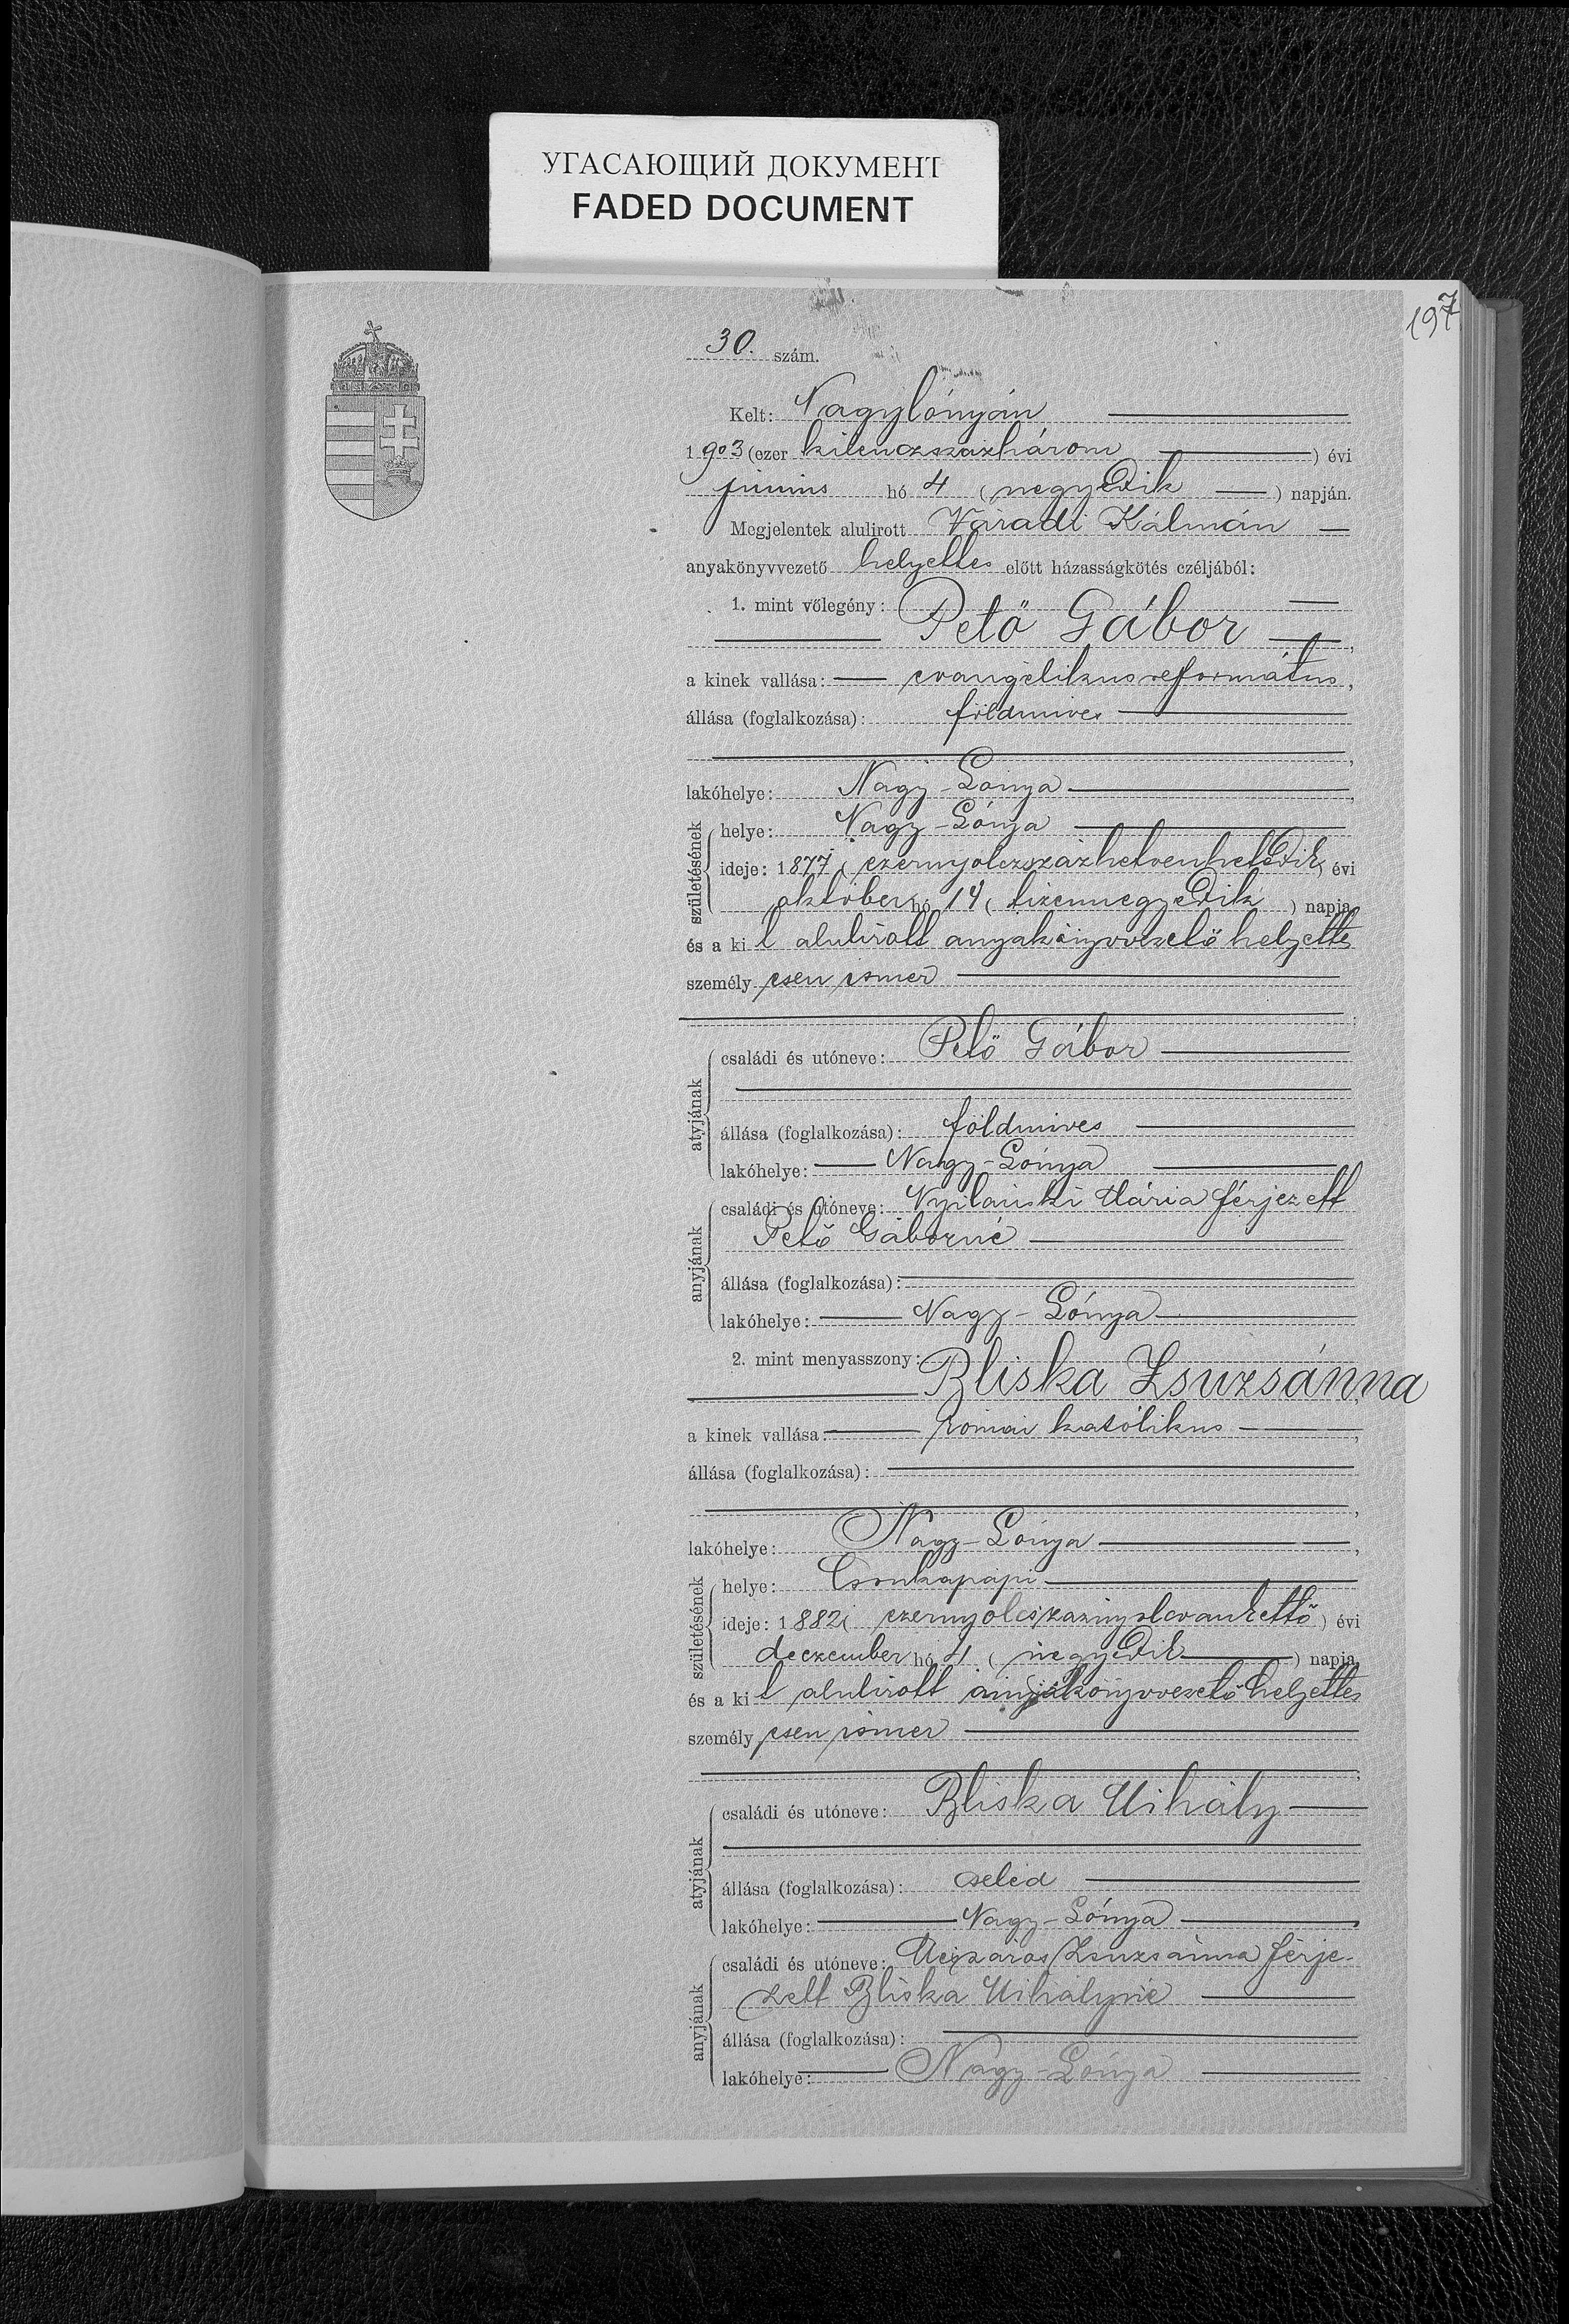 УГАСАЮЩИЙ ДОКУМЕНТ
FADED DOCUMENT
197
30. szám.
Kelt: Nagylónyán
1903 (ezer kilenczszázhárom ) évi
junius hó 4 (negyedik ) napján.
Megjelentek alulirott Váradi Kálmán
anyakönyvvezető helyettes előtt házasságkötés czéljából:
1. mint vőlegény:
Pető Gábor
a kinek vallása: evangélikus református,
állása (foglalkozása): földmives
lakóhelye: Nagy-Lónya
születésének
helye: Nagy-Lónya
ideje: 1877 (ezernyolczszázhetvenhetedik) évi
október hó 14 (tizennegyedik ) napja,
és a ki t alulirott anyakönyvvezető helyettes
személy esen ismer
atyjának
családi és utóneve: Pető Gábor
állása (foglalkozása): földmives
lakóhelye: Nagy-Lónya
anyjának
családi és utóneve: Mária férjezett
Pető Gáborné
állása (foglalkozása):
lakóhelye: Nagy-Lónya
2. mint menyasszony: Bliska Zsuzsánna
a kinek vallása: római katólikus
állása (foglalkozása):
lakóhelye: Nagy-Lónya
születésének
helye: Csonkapapi
ideje: 1882 ( ezernyolcszáznyolcvankettő ) évi
deczember hó 4 ( negyedik ) napja,
és a ki t alulirott anyakönyvvezető helyettes
személy esen ismer
atyjának
családi és utóneve: Bliska Mihály
állása (foglalkozása): cseléd
lakóhelye: Nagy-Lónya
anyjának
családi és utóneve: Mészáros Zsuzsánna férje-
zett Bliska Mihályné
állása (foglalkozása):
lakóhelye: Nagy-Lónya